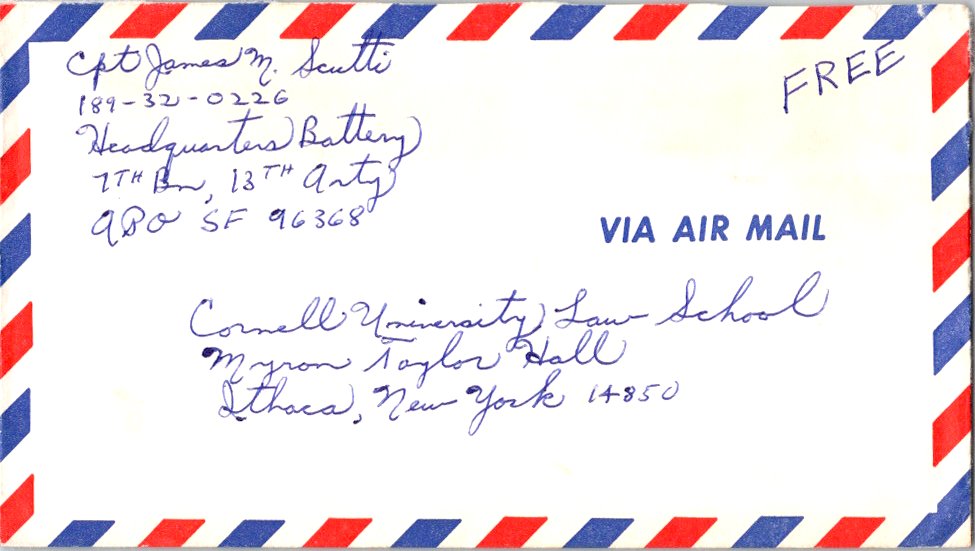 Cpt James M. Scutti
FREE
189-32-0226
Headquarters Battery
7TH Bn, 13TH Arty
APO SF 96368
VIA AIR MAIL
Cornell University Law School
Myron Taylor Hall
Ithaca, New York 14850